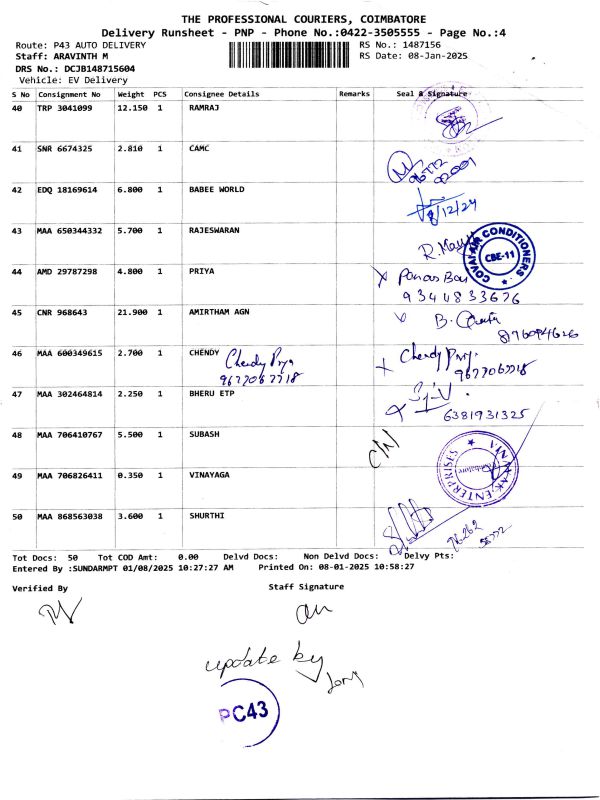 THE PROFESSIONAL COURIERS, COIMBATORE
Delivery Runsheet - PNP - Phone No.:0422-3505555 - Page No.:4
Route: P43 AUTO DELIVERY RS No.: 1487156
Staff: ARAVINTH M RS Date: 08-Jan-2025
DRS No.: DCJB148715604
Vehicle: EV Delivery
S No Consignment No Weight PCS Consignee Details Remarks Seal & Signature
40 TRP 3041099 12.150 1 RAMRAJ
41 SNR 6674325 2.810 1 CAMC
42 EDQ 18169614 6.800 1 BABEE WORLD
43 MAA 650344332 5.700 1 RAJESWARAN
COVAI AIR CONDITIONERS
CBE-11
44 AMD 29787298 4.800 1 PRIYA
9344833676
45 CNR 968643 21.900 1 AMIRTHAM AGN
46 MAA 600349615 2.700 1 CHENDY Chendy Priya Chendy Priya
9677067718 9677067718
47 MAA 302464814 2.250 1 BHERU ETP
6381931325
48 MAA 706410767 5.500 1 SUBASH
49 MAA 706826411 0.350 1 VINAYAGA
ENTERPRISES
50 MAA 868563038 3.600 1 SHURTHI
Tot Docs: 50 Tot COD Amt: 0.00 Delvd Docs: Non Delvd Docs: Delvy Pts:
Entered By :SUNDARMPT 01/08/2025 10:27:27 AM Printed On: 08-01-2025 10:58:27
Verified By Staff Signature
update by
PC43